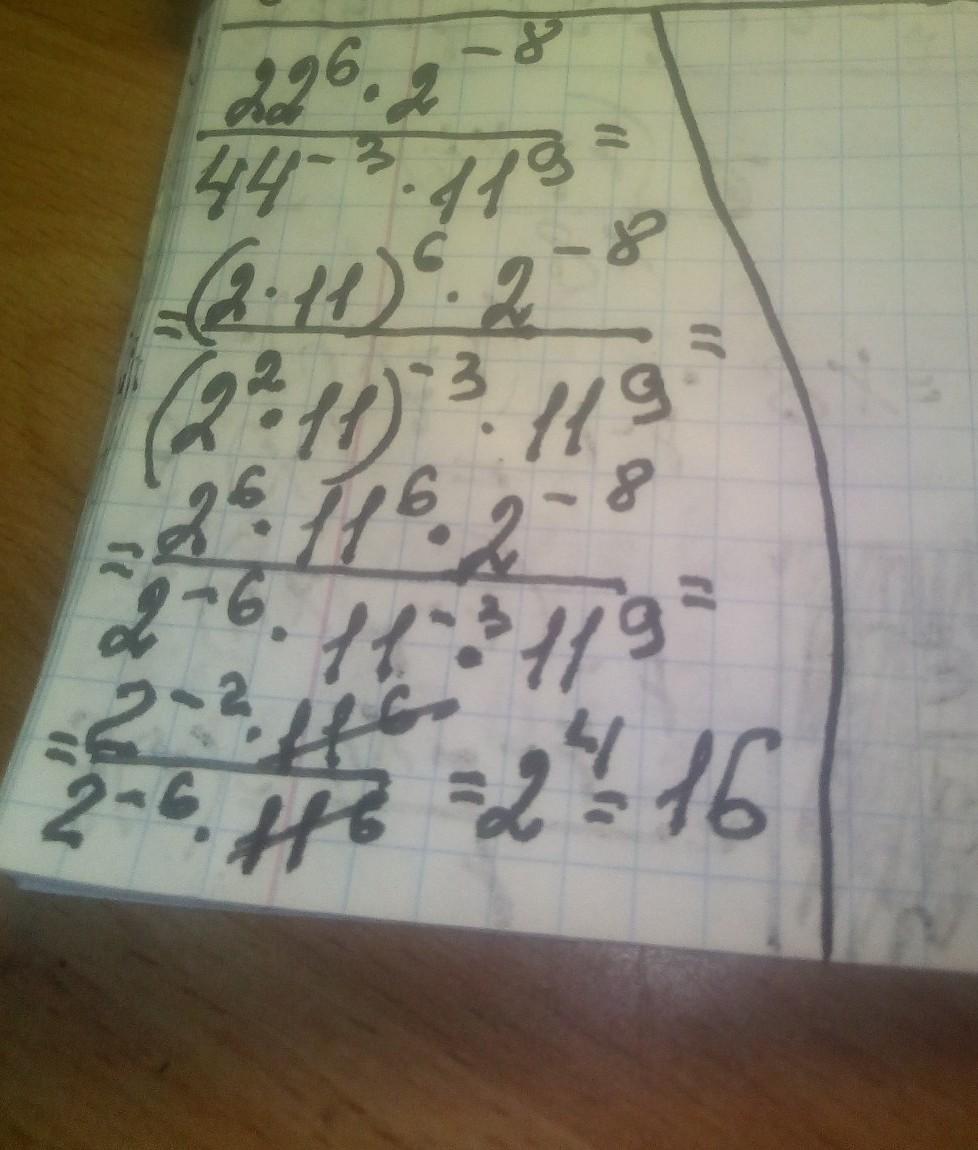 22⁶·2⁻⁸
44⁻³·11⁹ =
=(2·11)⁶·2⁻⁸ =
(2²·11)⁻³·11⁹
=2⁶·11⁶·2⁻⁸ =
2⁻⁶·11⁻³·11⁹
=2⁻²·11⁶ =2⁴=16
2⁻⁶·11⁶